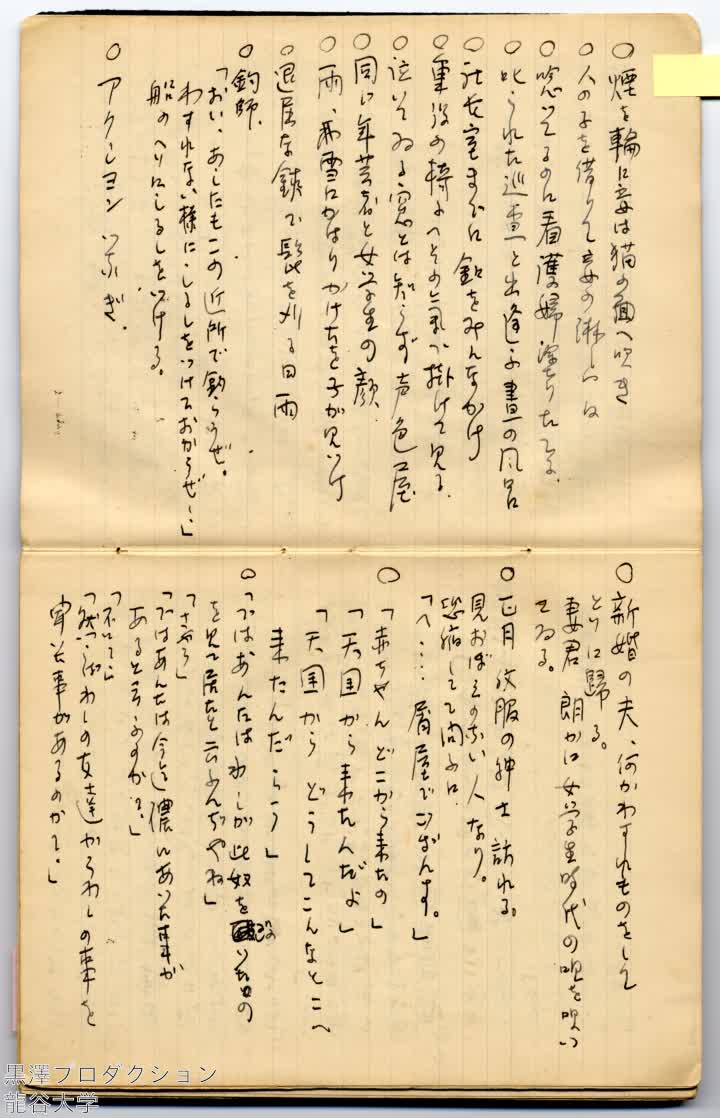 ○煙を輪に妾は猫の面へ吹き
○人の子を借りて妾の淋しらね
○唸いてるのに看護婦澄ましたもの
○叱られた巡査と出逢ふ昼の風呂
○社長室までに釦をみんなかけ
○重役の椅子へその気で掛けて見る
○泣いてゐる窓とは知らず声色屋
○同じ年芸者と女学生の顔
○雨、雨雪にかはりかけたを子が見つけ
○退屈な鋏で髭を刈る日雨
○釣師、
「おい、あしたもこの近所で釣らうぜ。
わすれない様にしるしをつけておかうぜ…」
船のへりにしるしをつける。
○アクレヨン
○新婚の夫、何かわすれものをして
とりに歸る。
妻君 朗かに女学生時代の唄を唄つ
てゐる。
○正月 式服の紳士 訪れる。
見おぼえのない人なり。
恐縮して問ふに
「へ…… 屑屋でござんす。」
○「赤ちやん どこから来たの」
「天国から来たんだよ」
「天国から どうしてこんなとこへ
来たんだらう」
○「ではあんたはわしが此奴を殴いたの
を見て居たと云ふんぢやね」
「さやう」
「ではあんたは今迄儂にあつた事が
あると云ふのか?」
「不いてら」
「然らばわしの友達からわしの事を
聞いた事があるのかて。」
黒澤プロダクション
龍谷大学